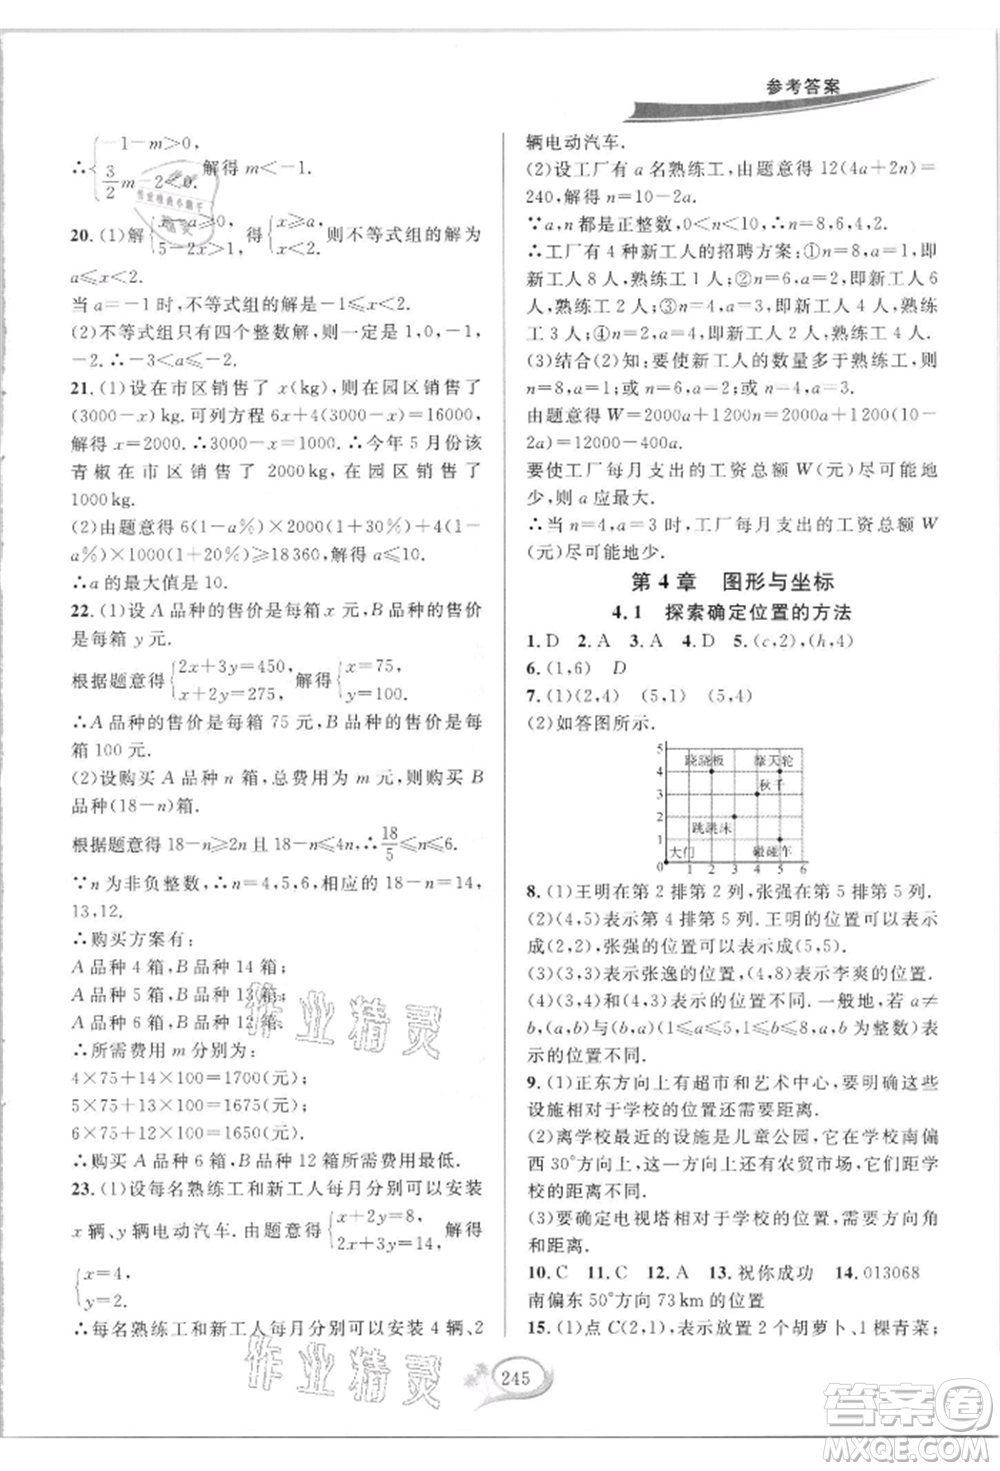 参考答案
∴{-1-m>0, 3/2 m-2<0. 解得 m<-1.
20. (1)解{x-a≥0, 5-2x>1, 得{x≥a, x<2. 则不等式组的解为
a≤x<2.
当 a=-1时,不等式组的解是-1≤x<2.
(2)不等式组只有四个整数解,则一定是1,0,-1,
-2. ∴-3<a≤-2.
21. (1)设在市区销售了 x(kg),则在园区销售了
(3000-x) kg. 可列方程 6x+4(3000-x)=16000,
解得 x=2000. ∴3000-x=1000. ∴今年 5 月份该
青椒在市区销售了 2000 kg,在园区销售了
1000 kg.
(2)由题意得 6(1-a%)×2000(1+30%)+4(1-
a%)×1000(1+20%)≥18360,解得 a≤10.
∴a 的最大值是 10.
22. (1)设 A 品种的售价是每箱 x 元,B 品种的售
价是每箱 y 元.
根据题意得{2x+3y=450, x+2y=275, 解得{x=75, y=100.
∴A 品种的售价是每箱 75 元,B 品种的售价是每
箱 100 元.
(2)设购买 A 品种 n 箱,总费用为 m 元,则购买 B
品种(18-n)箱.
根据题意得 18-n≥2n 且 18-n≤4n,∴18/5≤n≤6.
∵n 为非负整数,∴n=4,5,6,相应的 18-n=14,
13,12.
∴购买方案有:
A 品种 4 箱,B 品种 14 箱;
A 品种 5 箱,B 品种 13 箱;
A 品种 6 箱,B 品种 12 箱.
∴所需费用 m 分别为:
4×75+14×100=1700(元);
5×75+13×100=1675(元);
6×75+12×100=1650(元).
∴购买 A 品种 6 箱,B 品种 12 箱所需费用最低.
23. (1)设每名熟练工和新工人每月分别可以安装
x 辆、y 辆电动汽车. 由题意得{x+2y=8, 2x+3y=14, 解得
{x=4, y=2.
∴每名熟练工和新工人每月分别可以安装 4 辆、2
辆电动汽车.
(2)设工厂有 a 名熟练工,由题意得 12(4a+2n)=
240,解得 n=10-2a.
∵a,n 都是正整数,0<n<10,
∴工厂有 4 种新工人的招聘方案:①n=8,a=1,即
新工人 8 人,熟练工 1 人;②n=6,a=2,即新工人 6
人,熟练工 2 人;③n=4,a=3,即新工人 4 人,熟练
工 3 人;④n=2,a=4,即新工人 2 人,熟练工 4 人.
(3)结合(2)知:要使新工人的数量多于熟练工,则
n=8,a=1或 n=6,a=2或 n=4,a=3.
由题意得 W=2000a+1200n=2000a+1200(10-
2a)=12000-400a.
要使工厂每月支出的工资总额 W(元)尽可能地
少,则 a 应最大.
∴当 n=4,a=3 时,工厂每月支出的工资总额 W
(元)尽可能地少.
第 4 章 图形与坐标
4.1 探索确定位置的方法
1. D 2. A 3. A 4. D 5. (c,2),(h,4)
6. (1,6) D
7. (1)(2,4) (5,1) (5,4)
(2)如答图所示.
5
4
3
2
1
跷跷板 摩天轮
秋千
跳跳床
大门 碰碰车
0 1 2 3 4 5 6
8. (1)王明在第 2 排第 2 列,张强在第 5 排第 5 列.
(2)(4,5)表示第 4 排第 5 列. 王明的位置可以表示
成(2,2),张强的位置可以表示成(5,5).
(3)(3,4)表示张逸的位置,(4,3)表示李爽的位置.
(4)(3,4)和(4,3)表示的位置不同. 一般地,若 a≠
b,(a,b)与(b,a)(1≤a≤8,1≤b≤6,a,b 为整数)表
示的位置不同.
9. (1)正东方向上有超市和艺术中心,要明确这些
设施相对于学校的位置还需要距离.
(2)离学校最近的设施是儿童公园,它在学校南偏
西 30°方向上,这一方向上还有农贸市场,它们距学
校的距离不同.
(3)要确定电视塔相对于学校的位置,需要方向角
和距离.
10. C 11. C 12. A 13. 祝你成功 14. 013068
南偏东 50°方向 73 km 的位置
15. (1)点 C(2,1),表示放置 2 个胡萝卜、1 棵青菜;
245
作业精灵
作业精灵
答案圈
MXQE.COM